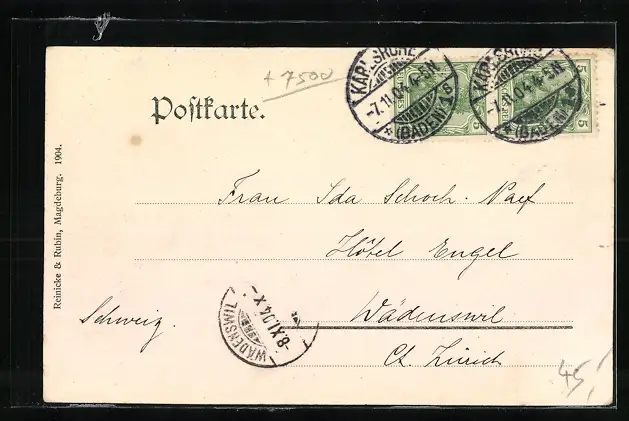 + 7500
KARLSRUHE
-7.11.04.4-5N
* (BADEN) 1g
KARLSRUHE
-7.11.04.4-5N
* (BADEN)
5
5
5
Postkarte.
Reinicke & Rubin, Magdeburg. 1904.
Frau Ida Schoch-Naef
Hôtel Engel
Wädenswil
Schweiz.
Ct. Zürich
WÆDENSWIL
-8.XI.04.X-
45,-